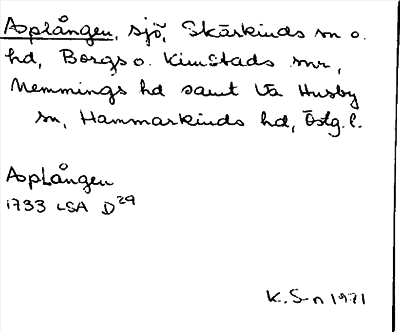 Asplången, sjö, Skärkinds sn o.
hd, Borgs o. Kimstads snr,
Memmings hd samt Va Husby
sn, Hammarkinds hd, Östg.l.
Asplången
1733 LSA D29
K. S-n 1971